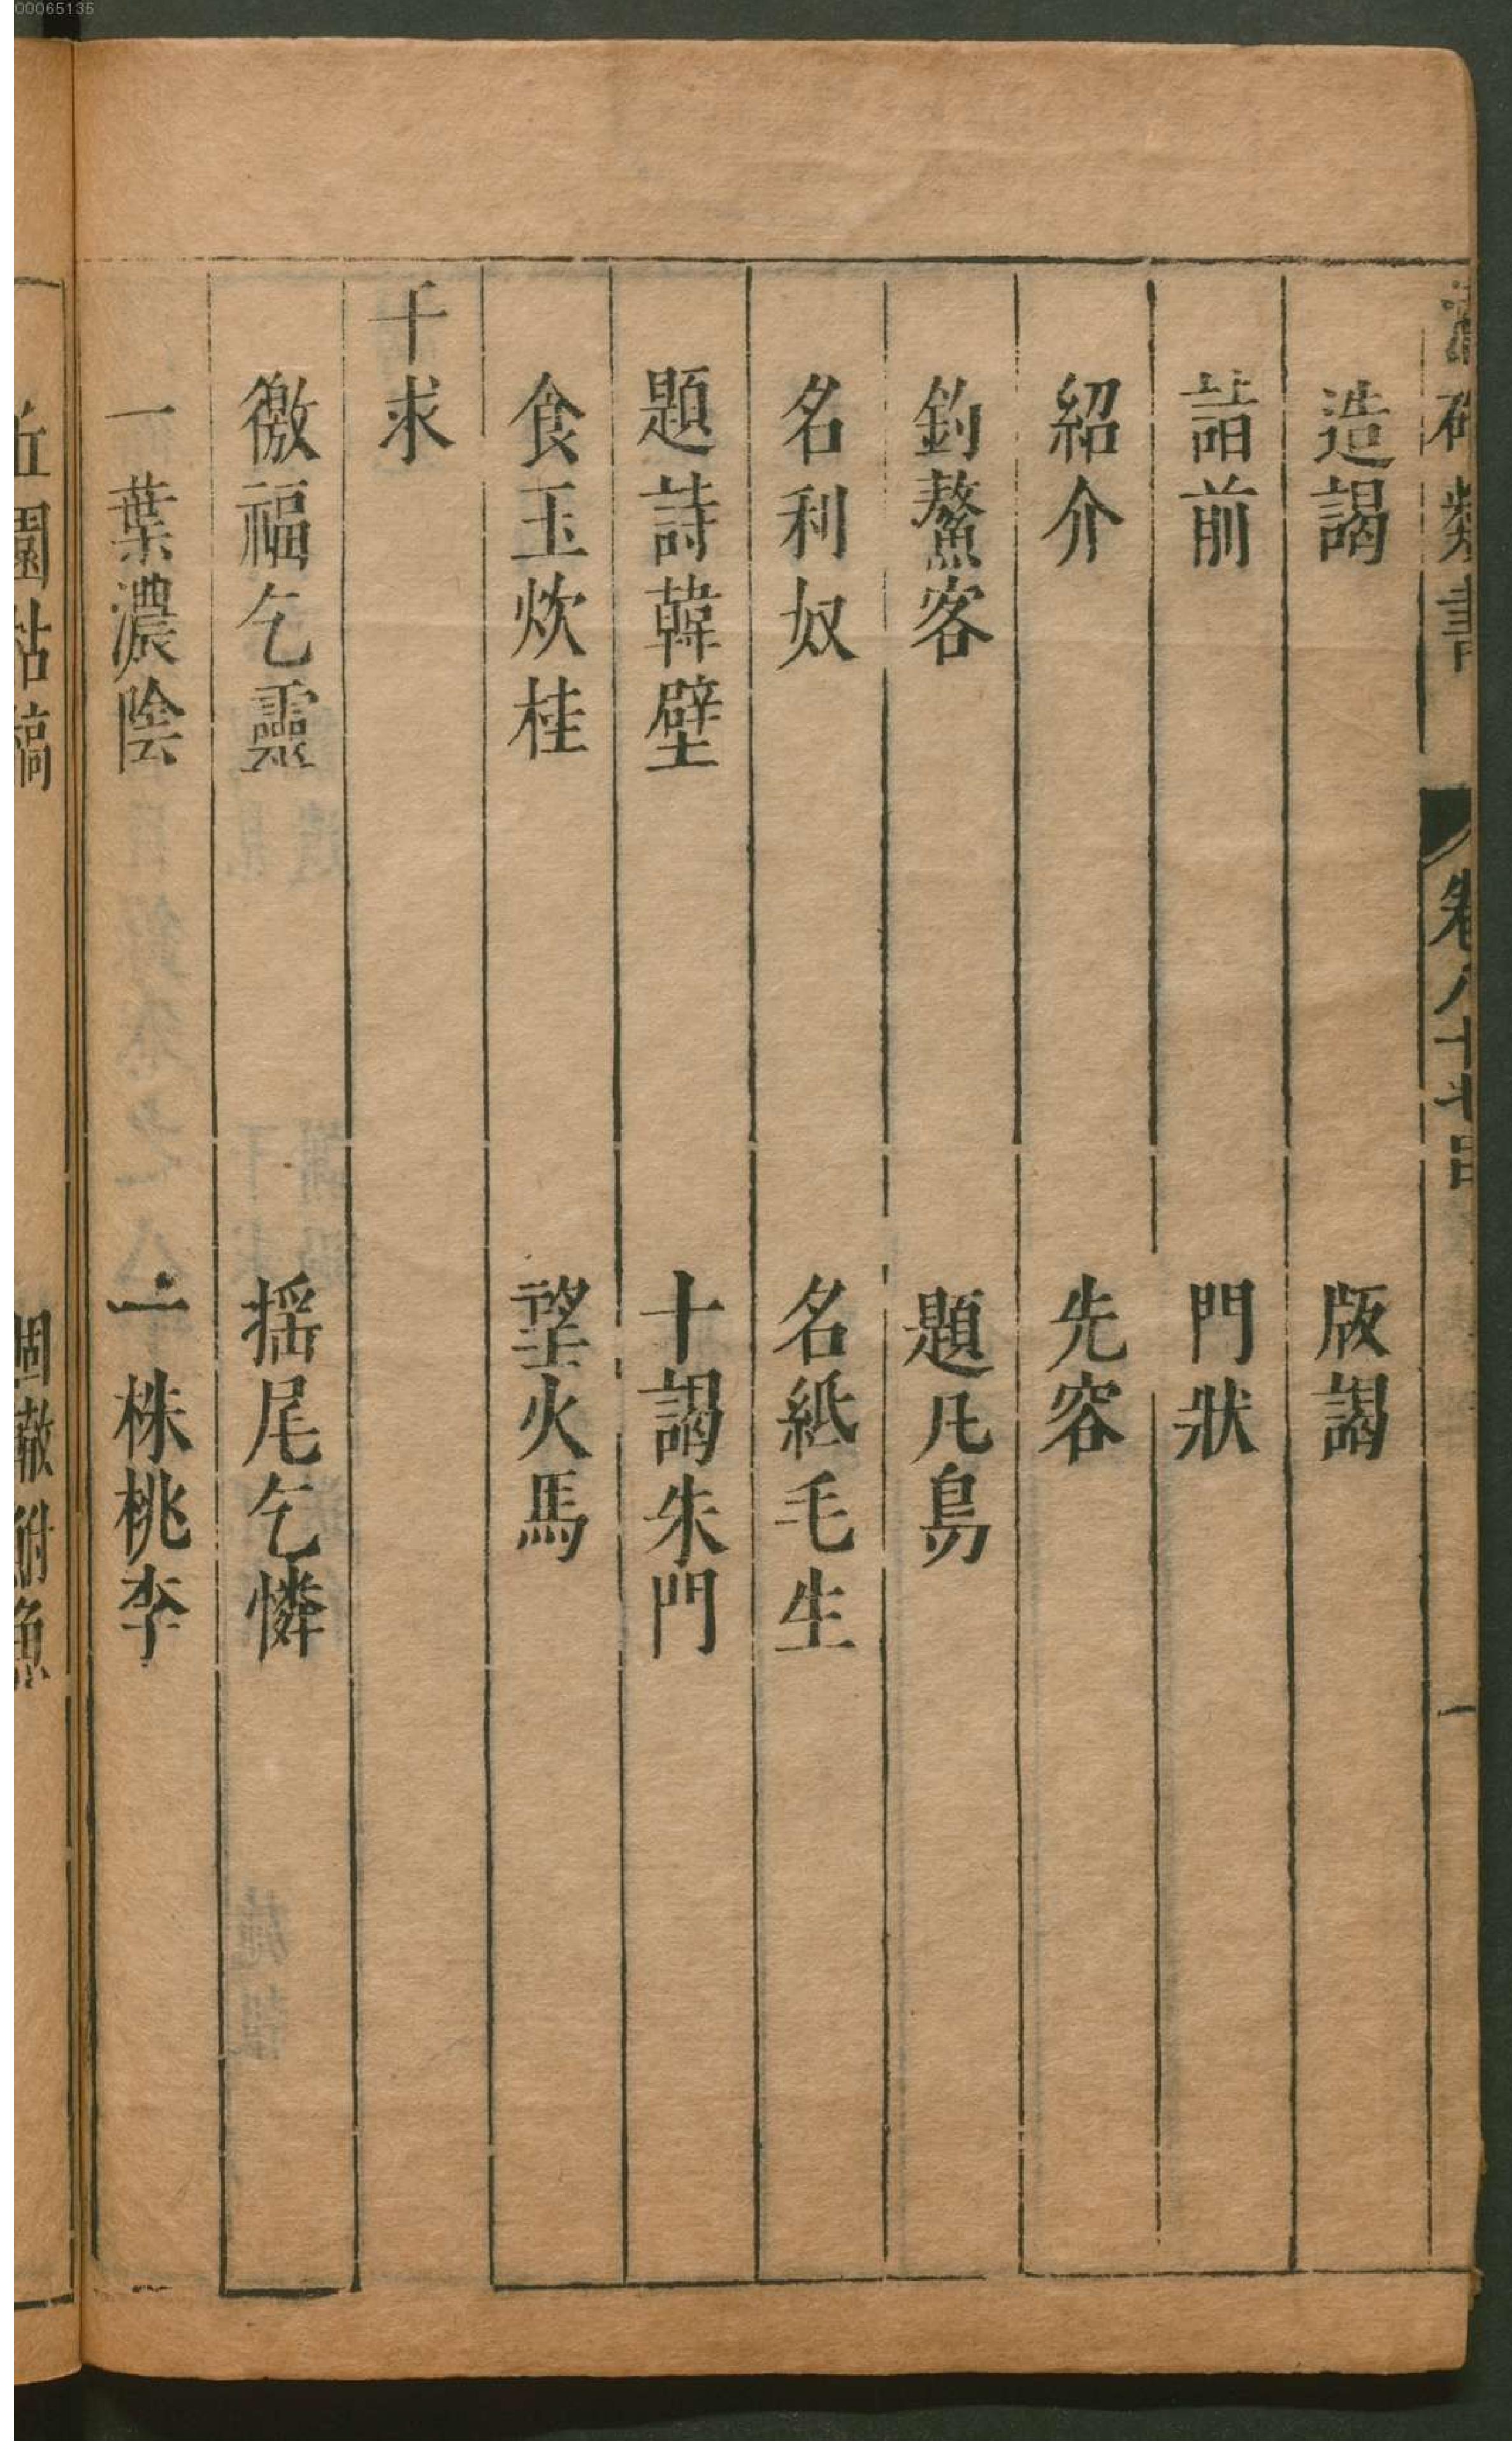 00065135
類書 卷八十七目 一
造謁 版謁
詣前 門狀
紹介 先容
釣鰲客 題凡鳥
名利奴 名紙毛生
題詩韓壁 十謁朱門
食玉炊桂 望火馬
干求
徼福乞靈 揺尾乞憐
一葉濃陰 一株桃李
丘園枯槁 涸轍鮒魚